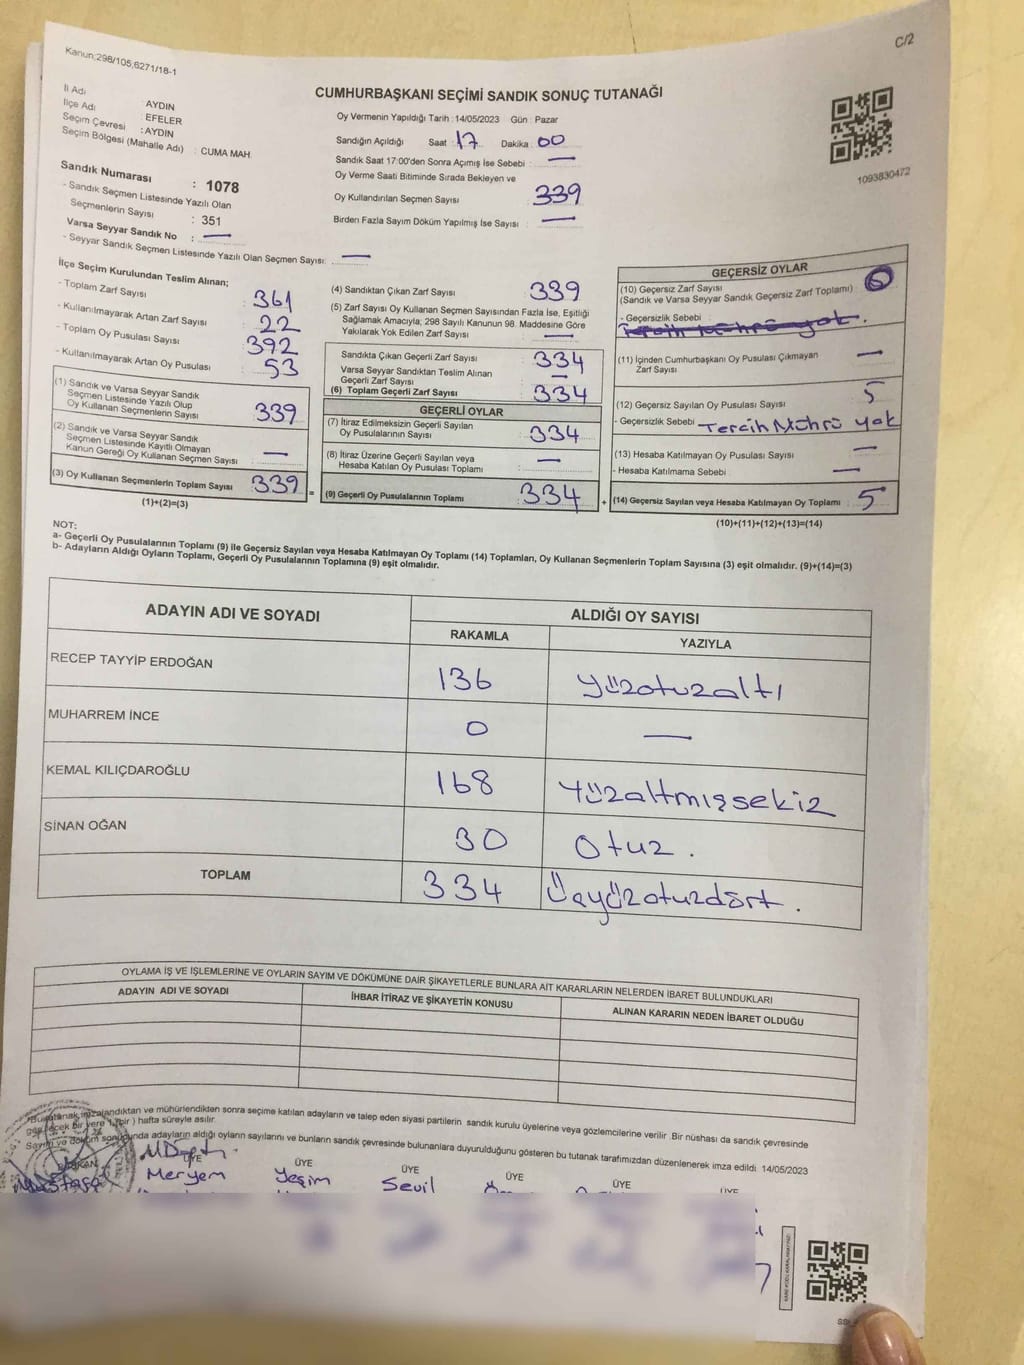 C/2
Kanun;298/105,6271/18-1
CUMHURBAŞKANI SEÇİMİ SANDIK SONUÇ TUTANAĞI
İl Adı : AYDIN
İlçe Adı : EFELER
Seçim Çevresi : AYDIN
Seçim Bölgesi (Mahalle Adı) : CUMA MAH.
Sandık Numarası : 1078
- Sandık Seçmen Listesinde Yazılı Olan
Seçmenlerin Sayısı : 351
Varsa Seyyar Sandık No : —
- Seyyar Sandık Seçmen Listesinde Yazılı Olan Seçmen Sayısı: —
Oy Vermenin Yapıldığı Tarih : 14/05/2023 Gün : Pazar
Sandığın Açıldığı Saat : 17 Dakika : 00
Sandık Saat 17:00'den Sonra Açımış İse Sebebi : —
Oy Verme Saati Bitiminde Sırada Bekleyen ve
Oy Kullandırılan Seçmen Sayısı : 339
Birden Fazla Sayım Döküm Yapılmış İse Sayısı : —
1093830472
İlçe Seçim Kurulundan Teslim Alınan;
- Toplam Zarf Sayısı 361
- Kullanılmayarak Artan Zarf Sayısı 22
- Toplam Oy Pusulası Sayısı 392
- Kullanılmayarak Artan Oy Pusulası 53
(1) Sandık ve Varsa Seyyar Sandık
Seçmen Listesinde Yazılı Olup
Oy Kullanan Seçmenlerin Sayısı 339
(2) Sandık ve Varsa Seyyar Sandık
Seçmen Listesinde Kayıtlı Olmayan
Kanun Gereği Oy Kullanan Seçmen Sayısı —
(3) Oy Kullanan Seçmenlerin Toplam Sayısı 339 =
(1)+(2)=(3)
(4) Sandıktan Çıkan Zarf Sayısı 339
(5) Zarf Sayısı Oy Kullanan Seçmen Sayısından Fazla İse, Eşitliği
Sağlamak Amacıyla, 298 Sayılı Kanunun 98. Maddesine Göre
Yakılarak Yok Edilen Zarf Sayısı —
Sandıkta Çıkan Geçerli Zarf Sayısı 334
Varsa Seyyar Sandıktan Teslim Alınan
Geçerli Zarf Sayısı —
(6) Toplam Geçerli Zarf Sayısı 334
GEÇERLİ OYLAR
(7) İtiraz Edilmeksizin Geçerli Sayılan
Oy Pusulalarının Sayısı 334
(8) İtiraz Üzerine Geçerli Sayılan veya
Hesaba Katılan Oy Pusulası Toplamı : —
(9) Geçerli Oy Pusulalarının Toplamı 334 +
GEÇERSİZ OYLAR
(10) Geçersiz Zarf Sayısı
(Sandık ve Varsa Seyyar Sandık Geçersiz Zarf Toplamı) :
- Geçersizlik Sebebi :
Tercih Mührü yok.
(11) İçinden Cumhurbaşkanı Oy Pusulası Çıkmayan
Zarf Sayısı —
(12) Geçersiz Sayılan Oy Pusulası Sayısı 5
- Geçersizlik Sebebi Tercih Mührü yok
(13) Hesaba Katılmayan Oy Pusulası Sayısı —
- Hesaba Katılmama Sebebi —
(14) Geçersiz Sayılan veya Hesaba Katılmayan Oy Toplamı 5
(10)+(11)+(12)+(13)=(14)
NOT:
a- Geçerli Oy Pusulalarının Toplamı (9) ile Geçersiz Sayılan veya Hesaba Katılmayan Oy Toplamı (14) Toplamları, Oy Kullanan Seçmenlerin Toplam Sayısına (3) eşit olmalıdır. (9)+(14)=(3)
b- Adayların Aldığı Oyların Toplamı, Geçerli Oy Pusulalarının Toplamına (9) eşit olmalıdır.
ADAYIN ADI VE SOYADI ALDIĞI OY SAYISI
RAKAMLA YAZIYLA
RECEP TAYYİP ERDOĞAN 136 yüzotuzaltı
MUHARREM İNCE 0 —
KEMAL KILIÇDAROĞLU 168 Yüzaltmışsekiz
SİNAN OĞAN 30 Otuz.
TOPLAM 334 Üçyüzotuzdört.
OYLAMA İŞ VE İŞLEMLERİNE VE OYLARIN SAYIM VE DÖKÜMÜNE DAİR ŞİKAYETLERLE BUNLARA AİT KARARLARIN NELERDEN İBARET BULUNDUKLARI
ADAYIN ADI VE SOYADI İHBAR İTİRAZ VE ŞİKAYETİN KONUSU ALINAN KARARIN NEDEN İBARET OLDUĞU
Bu tutanak imzalandıktan ve mühürlendikten sonra seçime katılan adayların ve talep eden siyasi partilerin sandık kurulu üyelerine veya gözlemcilerine verilir .Bir nüshası da sandık çevresinde
görülecek bir yere 1 (bir ) hafta süreyle asılır.
Sayım ve döküm sonucunda adayların aldığı oyların sayılarını ve bunların sandık çevresinde bulunanlara duyurulduğunu gösteren bu tutanak tarafımızdan düzenlenerek imza edildi. 14/05/2023
BAŞKAN ÜYE ÜYE ÜYE ÜYE ÜYE ÜYE
Mustafa Meryem Yeşim Sevil